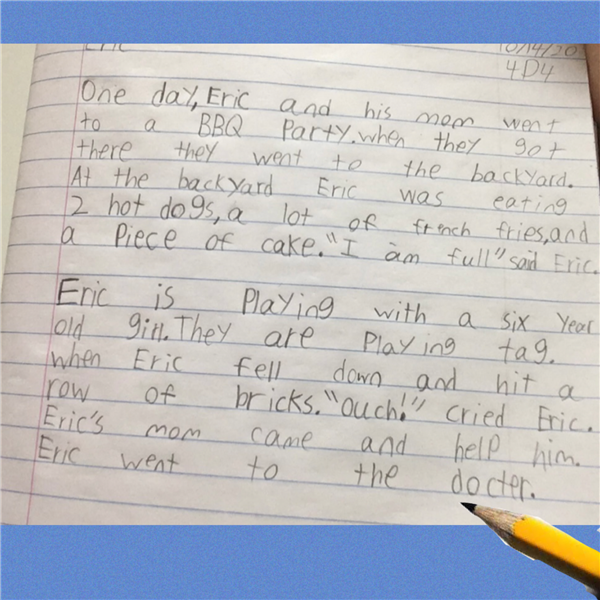 Eric
4D4
One day, Eric and his mom went
to a BBQ Party. when they got
there they went to the backyard.
At the backyard Eric was eating
2 hot dogs, a lot of french fries, and
a Piece of cake. "I am full" said Eric.
Eric is Playing with a six Year
old girl. They are Playing tag.
when Eric fell down and hit a
row of bricks. "ouch!" cried Eric.
Eric's mom came and help him.
Eric went to the docter.